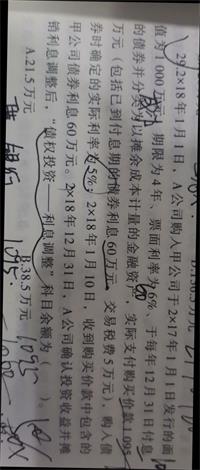 29.2×18年1月1日，A公司购入甲公司于2×17年1月1日发行的面
值为1 000万元、期限为4年、票面利率为6%、于每年12月31日付息
的债券并分类为以摊余成本计量的金融资产，实际支付购买价款1 095
万元（包括已到付息期的债券利息60万元，交易税费5万元），购入债
券时确定的实际利率为5%；2×18年1月10日，收到购买价款中包含的
甲公司债券利息60万元。2×18年12月31日，A公司确认投资收益并摊
销利息调整后，“债权投资——利息调整”科目余额为（　　）。
A.21.5万元 B.38.5万元
1095